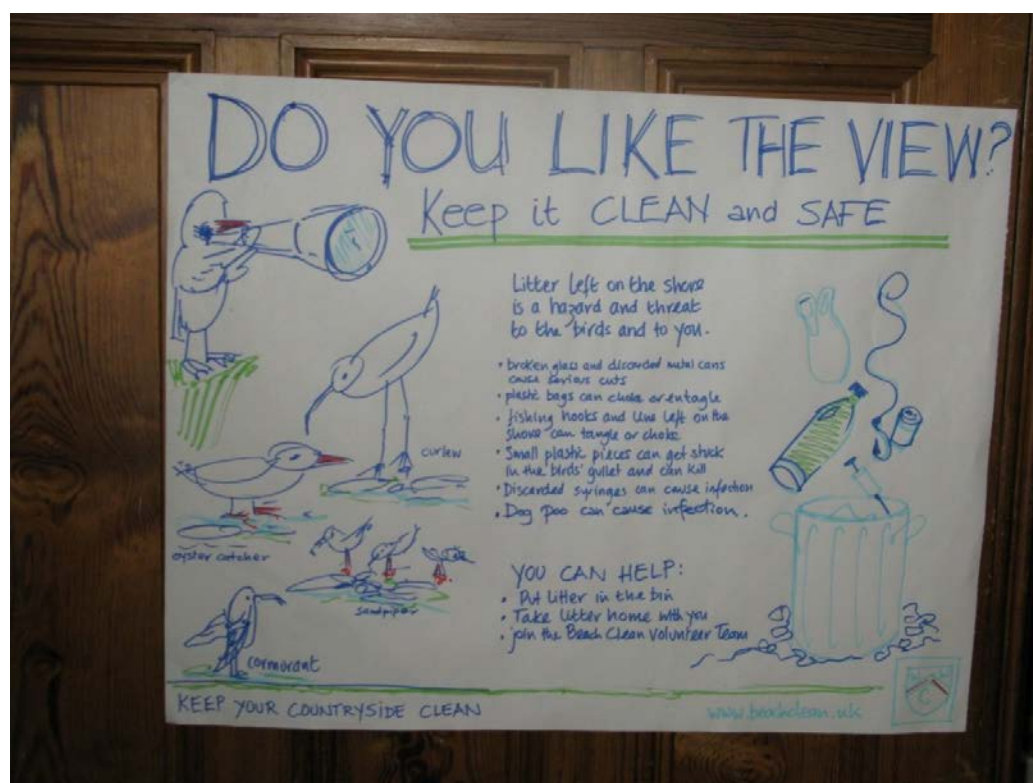 DO YOU LIKE THE VIEW?
Keep it CLEAN and SAFE
Litter left on the shore
is a hazard and threat
to the birds and to you.
• broken glass and discarded metal cans
cause serious cuts
• plastic bags can choke or entagle
• fishing hooks and line left on the
shore can tangle or choke
• Small plastic pieces can get stuck
in the birds' gullet and can kill
• Discarded syringes can cause infection
• Dog poo can cause infection.
curlew
oyster catcher
sandpiper
cormorant
YOU CAN HELP:
• Put litter in the bin
• Take litter home with you
• join the Beach Clean Volunteer Team
KEEP YOUR COUNTRYSIDE CLEAN
www.beachclean.uk